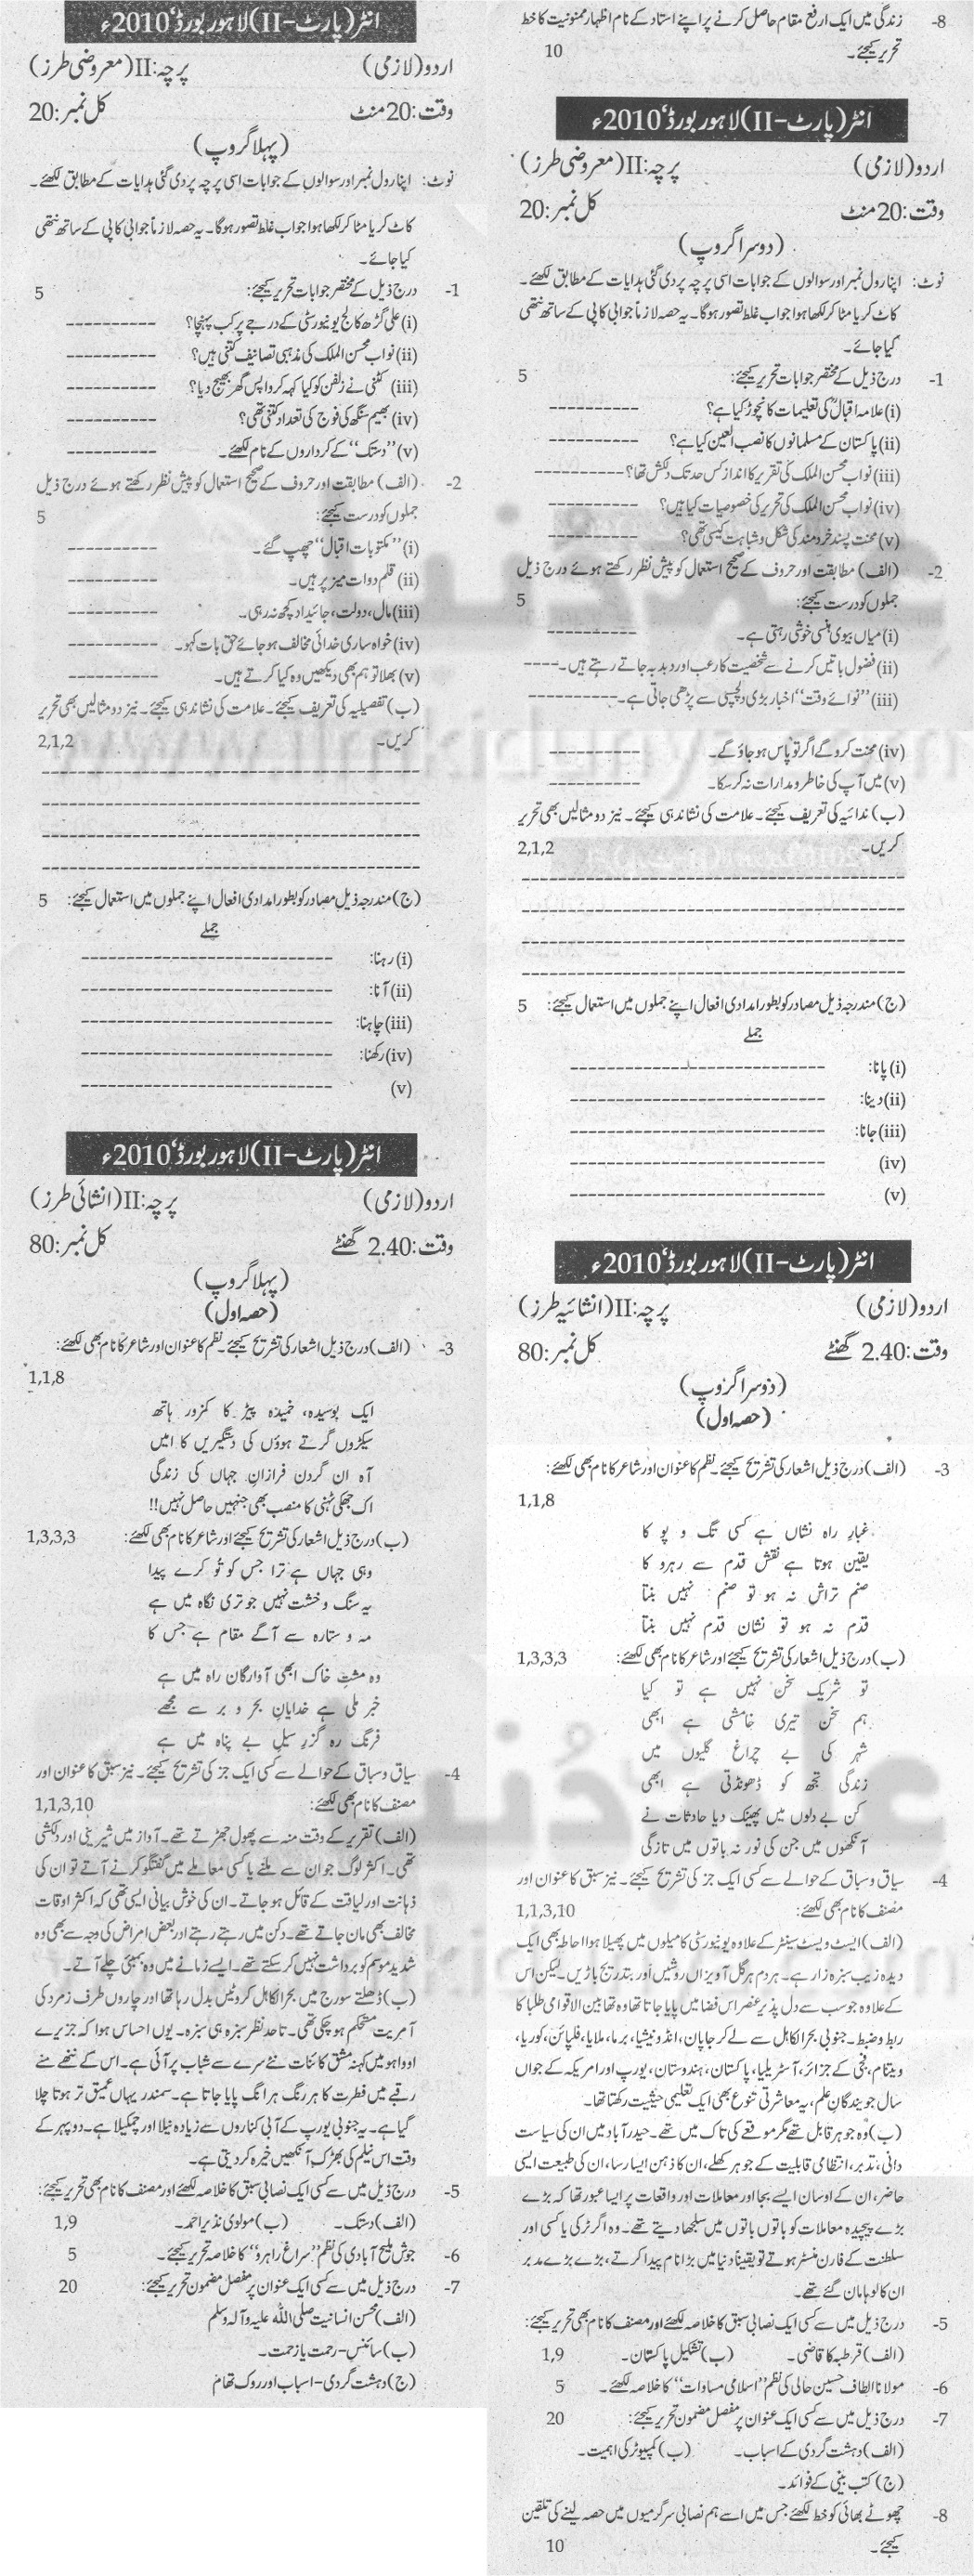 انٹر (پارٹ-II) لاہور بورڈ' 2010ء
اردو (لازمی) پرچہ: II (معروضی طرز)
وقت: 20 منٹ کل نمبر: 20
(پہلا گروپ)
نوٹ: اپنا رول نمبر اور سوالوں کے جوابات اسی پرچہ پر دی گئی ہدایات کے مطابق لکھئے۔
کاٹ کر یا مٹا کر لکھا ہوا جواب غلط تصور ہوگا۔ یہ حصہ لازماً جوابی کاپی کے ساتھ نتھی
کیا جائے۔
1- درج ذیل کے مختصر جوابات تحریر کیجئے: 5
(i) علی گڑھ کالج یونیورسٹی کے درجے پر کب پہنچا؟ ----------
(ii) نواب محسن الملک کی مذہبی تصانیف کتنی ہیں؟ ----------
(iii) کٹنی نے زلفن کو کیا کہہ کر واپس گھر بھیج دیا؟ ----------
(iv) بھیم سنگھ کی فوج کی تعداد کتنی تھی؟ ----------
(v) ''دستک'' کے کرداروں کے نام لکھئے۔ ----------
2- (الف) مطابقت اور حروف کے صحیح استعمال کو پیش نظر رکھتے ہوئے درج ذیل
جملوں کو درست کیجئے: 5
(i) ''مکتوبات اقبال'' چھپ گئے۔ ----------
(ii) قلم دوات میز پر ہیں۔ ----------
(iii) مال، دولت، جائیداد کچھ نہ رہی۔ ----------
(iv) خواہ ساری خدائی مخالف ہو جائے حق بات کہو۔ ----------
(v) بھلا تو ہم بھی دیکھیں وہ کیا کرتے ہیں۔ ----------
(ب) تفصیلیہ کی تعریف کیجئے۔ علامت کی نشاندہی کیجئے۔ نیز دو مثالیں بھی تحریر
کریں۔ 2,1,2
(ج) مندرجہ ذیل مصادر کو بطور امدادی افعال اپنے جملوں میں استعمال کیجئے: 5
جملے
(i) رہنا: ----------
(ii) آنا: ----------
(iii) چاہنا: ----------
(iv) رکھنا: ----------
(v) ----------
انٹر (پارٹ-II) لاہور بورڈ' 2010ء
اردو (لازمی) پرچہ: II (انشائی طرز)
وقت: 2.40 گھنٹے کل نمبر: 80
(پہلا گروپ)
(حصہ اول)
3- (الف) درج ذیل اشعار کی تشریح کیجئے۔ نظم کا عنوان اور شاعر کا نام بھی لکھئے:
1,1,8
ایک بوسیدہ، خمیدہ پیڑ کا کمزور ہاتھ
سیکڑوں گرتے ہوؤں کی دستگیریں کا امیں
آہ ان گردن فرازان جہاں کی زندگی
اک جھکی ٹہنی کا منصب بھی جنہیں حاصل نہیں!!
(ب) درج ذیل اشعار کی تشریح کیجئے اور شاعر کا نام بھی لکھئے: 1,3,3,3
وہی جہاں ہے ترا جس کو تُو کرے پیدا
یہ سنگ و خشت نہیں جو تری نگاہ میں ہے
مہ و ستارہ سے آگے مقام ہے جس کا
وہ مشت خاک ابھی آوارگان راہ میں ہے
خبر ملی ہے خدایان بحر و بر سے مجھے
فرنگ رہ گزر سیل بے پناہ میں ہے
4- سیاق و سباق کے حوالے سے کسی ایک جز کی تشریح کیجئے۔ نیز سبق کا عنوان اور
مصنف کا نام بھی لکھئے: 1,1,3,10
(الف) تقریر کے وقت منہ سے پھول جھڑتے تھے۔ آواز میں شیرینی اور دلکشی
تھی۔ اکثر لوگ جو ان سے ملنے یا کسی معاملے میں گفتگو کرنے آتے تو ان کی
ذہانت اور لیاقت کے قائل ہو جاتے۔ ان کی خوش بیانی ایسی تھی کہ اکثر اوقات
مخالف بھی مان جاتے تھے۔ دکن میں رہتے رہتے اور بعض امراض کی وجہ سے بھی وہ
شدید موسم کو برداشت نہیں کر سکتے تھے۔ ایسے زمانے میں وہ بمبئی چلے آتے۔
(ب) ڈھلتے سورج میں بحرالکاہل کروٹیں بدل رہا تھا اور چاروں طرف زمرد کی
آمریت مستحکم ہو چکی تھی۔ تاحد نظر سبزہ ہی سبزہ۔ یوں احساس ہوا کہ جزیرے
اوواہو میں کہنہ مشق کائنات نئے سرے سے شباب پر آئی ہے۔ اس کے ننھے منے
رقبے میں فطرت کا ہر رنگ ہر انگ پایا جاتا ہے۔ سمندر یہاں عمیق تر ہوتا چلا
گیا ہے۔ یہ جنوبی یورپ کے آبی کناروں سے زیادہ نیلا اور چمکیلا ہے۔ دوپہر کے
وقت اس نیلم کی بھڑک آنکھیں خیرہ کر دیتی ہے۔
5- درج ذیل میں سے کسی ایک نصابی سبق کا خلاصہ لکھئے اور مصنف کا نام بھی تحریر کیجئے:
(الف) دستک۔ (ب) مولوی نذیر احمد۔ 1,9
6- جوش ملیح آبادی کی نظم ''سراغ راہرو'' کا خلاصہ تحریر کیجئے۔ 5
7- درج ذیل میں سے کسی ایک عنوان پر مفصل مضمون تحریر کیجئے: 20
(الف) محسن انسانیت صلی اللہ علیہ وآلہ وسلم
(ب) سائنس- رحمت یا زحمت۔
(ج) دہشت گردی- اسباب اور روک تھام
8- زندگی میں ایک ارفع مقام حاصل کرنے پر اپنے استاد کے نام اظہار ممنونیت کا خط
تحریر کیجئے۔ 10
انٹر (پارٹ-II) لاہور بورڈ' 2010ء
اردو (لازمی) پرچہ: II (معروضی طرز)
وقت: 20 منٹ کل نمبر: 20
(دوسرا گروپ)
نوٹ: اپنا رول نمبر اور سوالوں کے جوابات اسی پرچہ پر دی گئی ہدایات کے مطابق لکھئے۔
کاٹ کر یا مٹا کر لکھا ہوا جواب غلط تصور ہوگا۔ یہ حصہ لازماً جوابی کاپی کے ساتھ نتھی
کیا جائے۔
1- درج ذیل کے مختصر جوابات تحریر کیجئے: 5
(i) علامہ اقبالؒ کی تعلیمات کا نچوڑ کیا ہے؟ ----------
(ii) پاکستان کے مسلمانوں کا نصب العین کیا ہے؟ ----------
(iii) نواب محسن الملک کی تقریر کا انداز کس حد تک دلکش تھا؟ ----------
(iv) نواب محسن الملک کی تحریر کی خصوصیات کیا ہیں؟ ----------
(v) محنت پسند خردمند کی شکل و شباہت کیسی تھی؟ ----------
2- (الف) مطابقت اور حروف کے صحیح استعمال کو پیش نظر رکھتے ہوئے درج ذیل
جملوں کو درست کیجئے: 5
(i) میاں بیوی ہنسی خوشی رہتی ہے۔ ----------
(ii) فضول باتیں کرنے سے شخصیت کا رعب اور دبدبہ جاتے رہتے ہیں۔ ----
(iii) ''نوائے وقت'' اخبار بڑی دلچسپی سے پڑھی جاتی ہے۔ ----------
(iv) محنت کرو گے اگر تو پاس ہو جاؤ گے۔ ----------
(v) میں آپ کی خاطر و مدارات نہ کر سکا۔ ----------
(ب) ندائیہ کی تعریف کیجئے۔ علامت کی نشاندہی کیجئے۔ نیز دو مثالیں بھی تحریر
کریں۔ 2,1,2
(ج) مندرجہ ذیل مصادر کو بطور امدادی افعال اپنے جملوں میں استعمال کیجئے: 5
جملے
(i) پانا: ----------
(ii) دینا: ----------
(iii) جانا: ----------
(iv) ----------
(v) ----------
انٹر (پارٹ-II) لاہور بورڈ' 2010ء
اردو (لازمی) پرچہ: II (انشائیہ طرز)
وقت: 2.40 گھنٹے کل نمبر: 80
(دوسرا گروپ)
(حصہ اول)
3- (الف) درج ذیل اشعار کی تشریح کیجئے۔ نظم کا عنوان اور شاعر کا نام بھی لکھئے:
1,1,8
غبار راہ نشاں ہے کسی تگ و پو کا
یقین ہوتا ہے نقش قدم سے رہرو کا
صنم تراش نہ ہو تو صنم نہیں بنتا
قدم نہ ہو تو نشان قدم نہیں بنتا
(ب) درج ذیل اشعار کی تشریح کیجئے اور شاعر کا نام بھی لکھئے: 1,3,3,3
تو شریک سخن نہیں ہے تو کیا
ہم سخن تیری خامشی ہے ابھی
شہر کی بے چراغ گلیوں میں
زندگی تجھ کو ڈھونڈتی ہے ابھی
کن بے دلوں میں پھینک دیا حادثات نے
آنکھوں میں جن کی نور نہ باتوں میں تازگی
4- سیاق و سباق کے حوالے سے کسی ایک جز کی تشریح کیجئے۔ نیز سبق کا عنوان اور
مصنف کا نام بھی لکھئے: 1,1,3,10
(الف) ایسٹ ویسٹ سینٹر کے علاوہ یونیورسٹی کا میلوں میں پھیلا ہوا احاطہ بھی ایک
دیدہ زیب سبزہ زار ہے۔ ہر دم ہر گل آویزاں روشیں اور بتدریج باڑیں۔ لیکن اس
کے علاوہ جو سب سے دل پذیر عنصر اس فضا میں پایا جاتا تھا وہ تھا بین الاقوامی طلبا کا
ربط و ضبط۔ جنوبی بحرالکاہل سے لے کر جاپان، انڈونیشیا، برما، ملایا، فلپائن، کوریا،
ویتنام، فجی کے جزائر، آسٹریلیا، پاکستان، ہندوستان، یورپ اور امریکہ کے جواں
سال جویندگان علم، یہ معاشرتی تنوع بھی ایک تعلیمی حیثیت رکھتا تھا۔
(ب) وہ جوہر قابل تھے مگر موقعے کی تاک میں تھے۔ حیدر آباد میں ان کی سیاست
دانی، تدبر، انتظامی قابلیت کے جوہر کھلے، ان کا ذہن ایسا رسا، ان کی طبیعت ایسی
حاضر، ان کے اوسان ایسے بجا اور معاملات اور واقعات پر ایسا عبور تھا کہ بڑے
بڑے پیچیدہ معاملات کو باتوں باتوں میں سلجھا دیتے تھے۔ وہ اگر ٹرکی یا کسی اور
سلطنت کے فارن منسٹر ہوتے تو یقیناً دنیا میں بڑا نام پیدا کرتے، بڑے بڑے مدبر
ان کا لوہا مان گئے تھے۔
5- درج ذیل میں سے کسی ایک نصابی سبق کا خلاصہ لکھئے اور مصنف کا نام بھی تحریر کیجئے:
(الف) قرطبہ کا قاضی۔ (ب) تشکیل پاکستان۔ 1,9
6- مولانا الطاف حسین حالی کی نظم ''اسلامی مساوات'' کا خلاصہ لکھئے۔ 5
7- درج ذیل میں سے کسی ایک عنوان پر مفصل مضمون تحریر کیجئے: 20
(الف) دہشت گردی کے اسباب۔ (ب) کمپیوٹر کی اہمیت۔
(ج) کتب بینی کے فوائد۔
8- چھوٹے بھائی کو خط لکھئے جس میں اسے ہم نصابی سرگرمیوں میں حصہ لینے کی تلقین
کیجئے۔ 10